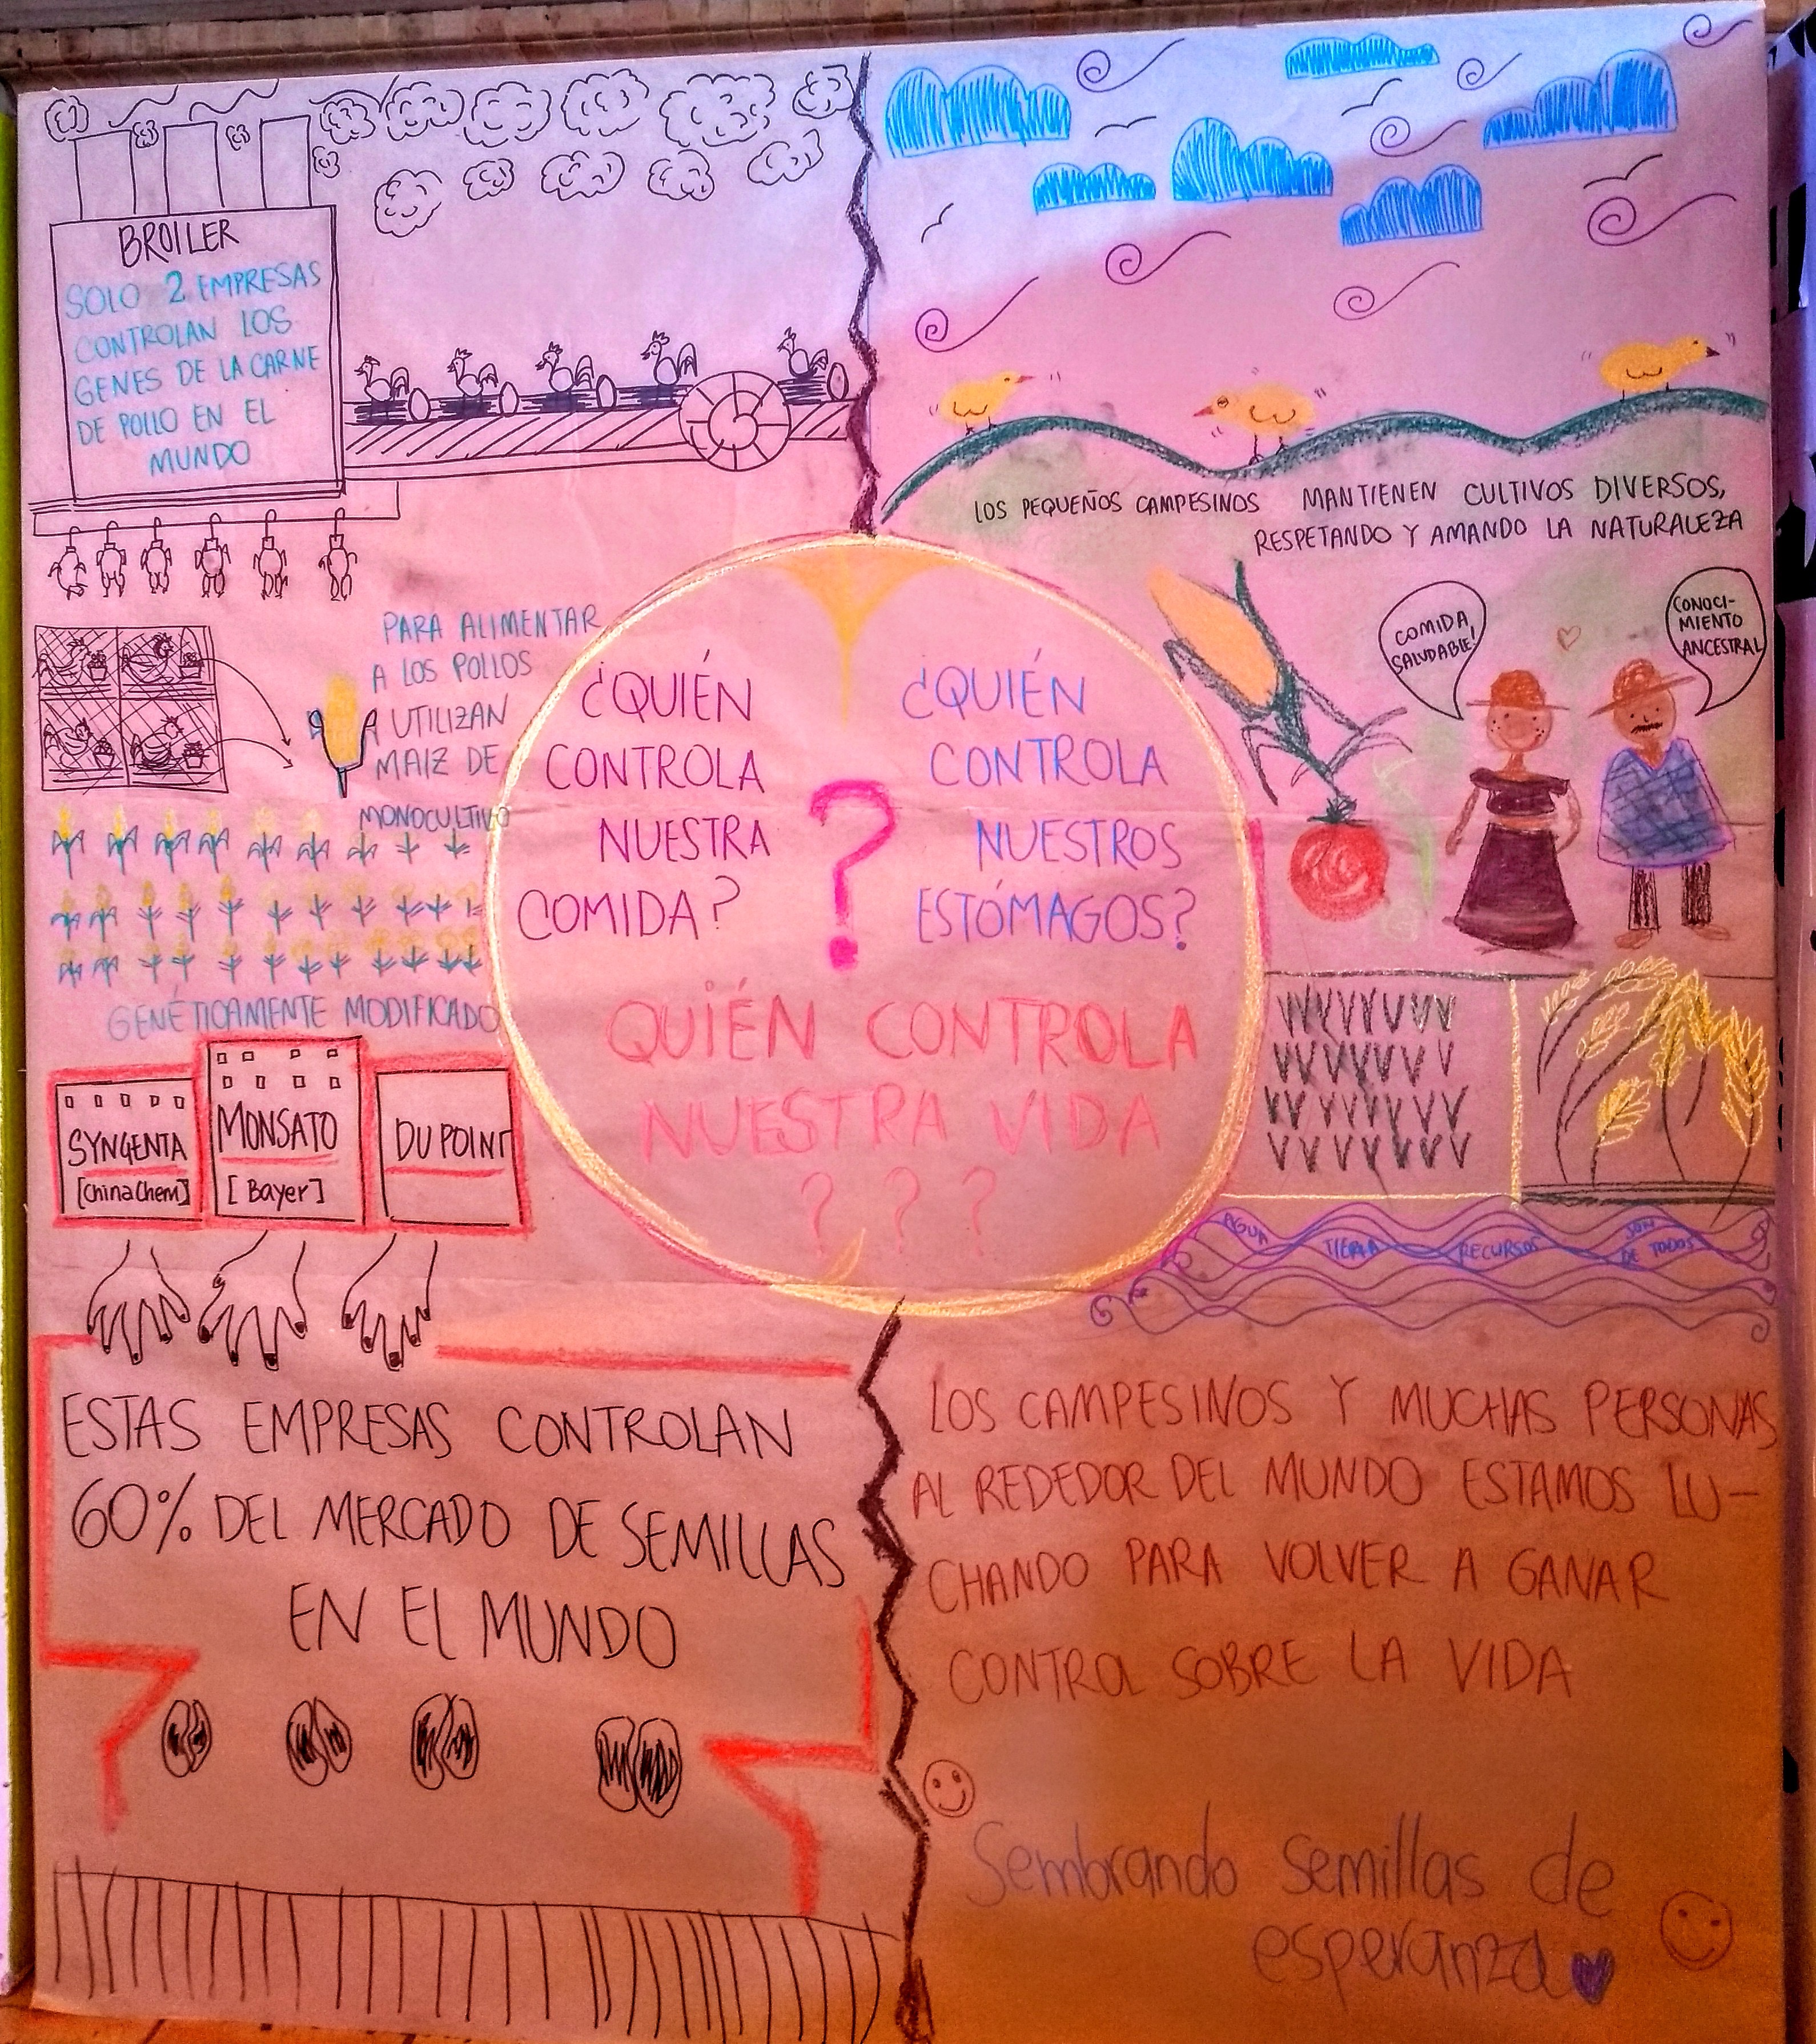 BROILER
SOLO 2 EMPRESAS
CONTROLAN LOS
GENES DE LA CARNE
DE POLLO EN EL
MUNDO
PARA ALIMENTAR
A LOS POLLOS
UTILIZAN
MAIZ DE
MONOCULTIVO
GENÉTICAMENTE MODIFICADO
SYNGENTA
[ChinaChem]
MONSATO
[Bayer]
DU POINT
ESTAS EMPRESAS CONTROLAN
60% DEL MERCADO DE SEMILLAS
EN EL MUNDO
¿QUIÉN
CONTROLA
NUESTRA
COMIDA?
?
¿QUIÉN
CONTROLA
NUESTROS
ESTÓMAGOS?
QUIÉN CONTROLA
NUESTRA VIDA
? ? ?
LOS PEQUEÑOS CAMPESINOS MANTIENEN CULTIVOS DIVERSOS,
RESPETANDO Y AMANDO LA NATURALEZA
COMIDA
SALUDABLE!
CONOCI-
MIENTO
ANCESTRAL
AGUA TIERRA RECURSOS SON
DE TODOS
LOS CAMPESINOS Y MUCHAS PERSONAS
AL REDEDOR DEL MUNDO ESTAMOS LU-
CHANDO PARA VOLVER A GANAR
CONTROL SOBRE LA VIDA
Sembrando semillas de
esperanza